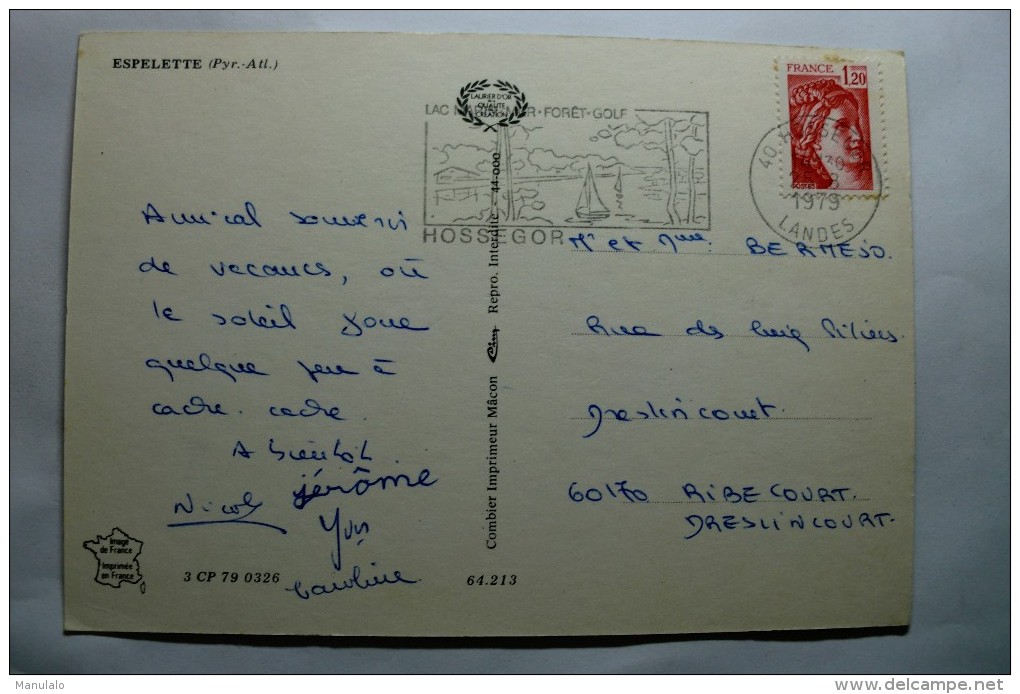 ESPELETTE (Pyr.-Atl.)
LAURIER D'OR
QUALITÉ
CRÉATION
LAC MER•FORÊT•GOLF
HOSSEGOR
FRANCE 1,20
POSTES
40
1979
LANDES
Amical souvenir
de vacances, où
le soleil joue
quelque peu à
cache. cache.
A bientôt
Nicole
jérôme
Yves
Caroline
Combier Imprimeur Mâcon Cim Repro. Interdite 44-000
Mr et Mme. BERMEJO.
Rue des Piliers.
Dreslincourt.
60170 RIBECOURT.
DRESLINCOURT.
Image
de France
Imprimée
en France
3 CP 79 0326
64.213
Manulalo
www.delcampe.net